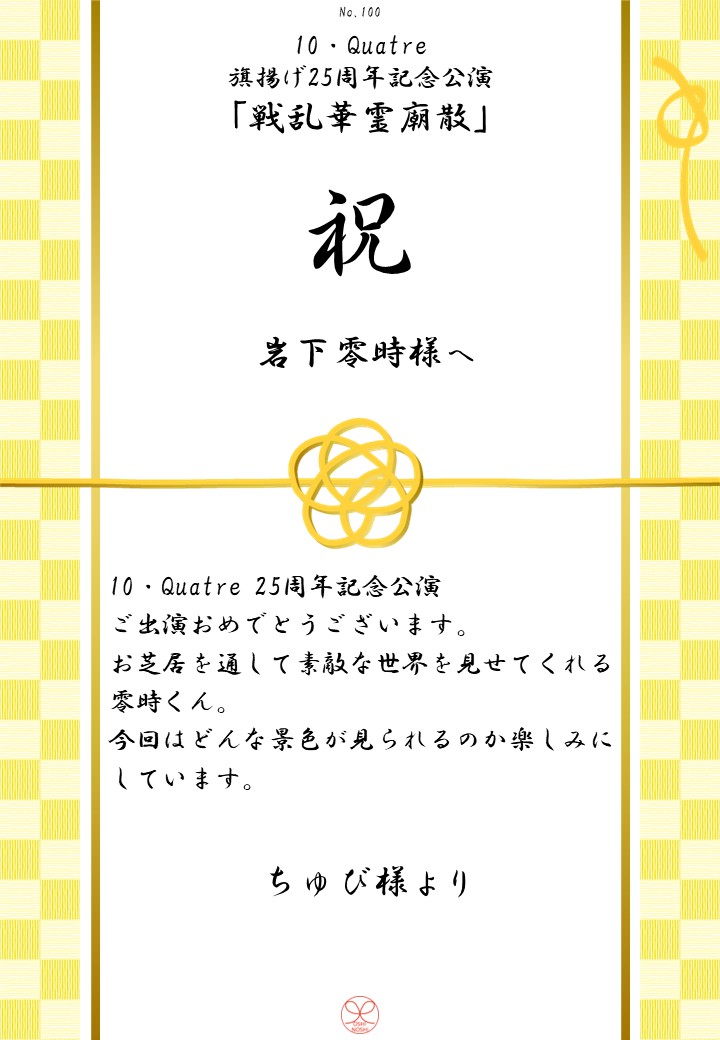 No.100
10・Quatre
旗揚げ25周年記念公演
「戦乱華霊廟散」
祝
岩下零時様へ
10・Quatre 25周年記念公演
ご出演おめでとうございます。
お芝居を通して素敵な世界を見せてくれる
零時くん。
今回はどんな景色が見られるのか楽しみに
しています。
ちゅび様より
OSHI
NOSHI